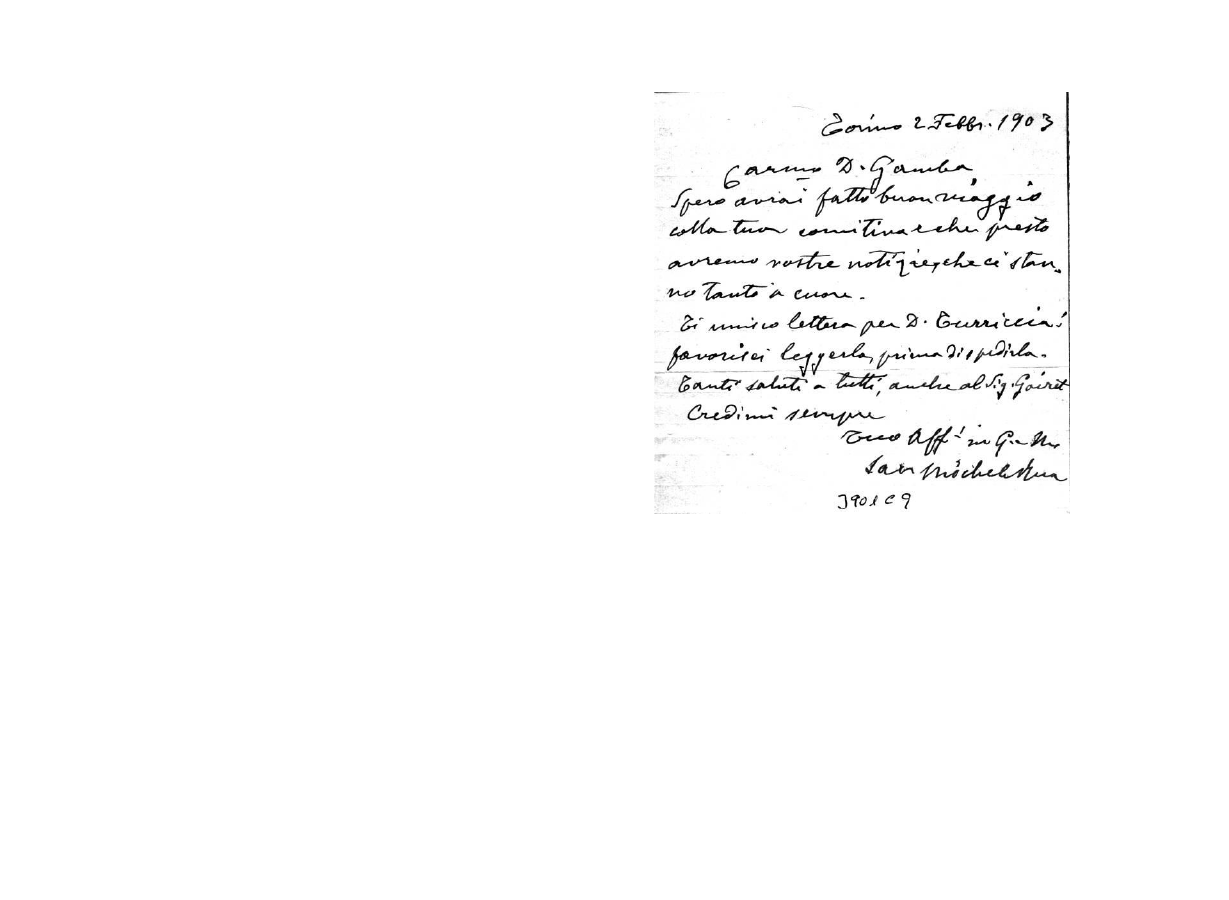 Torino 2 Febbr. 1903
Carmo D. Gamba
Spero avrai fatto buon viaggio
colla tua comitiva e che presto
avremo vostre notizie, che ci stan-
no tanto a cuore.
Ti unisco lettera per D. Turriccia:
favorisci leggerla, prima di spedirla.
Tanti saluti a tutti, anche al Sig.
Credimi sempre
Tuo Aff. in G. e M.
Sac Michele Rua
J901 C9